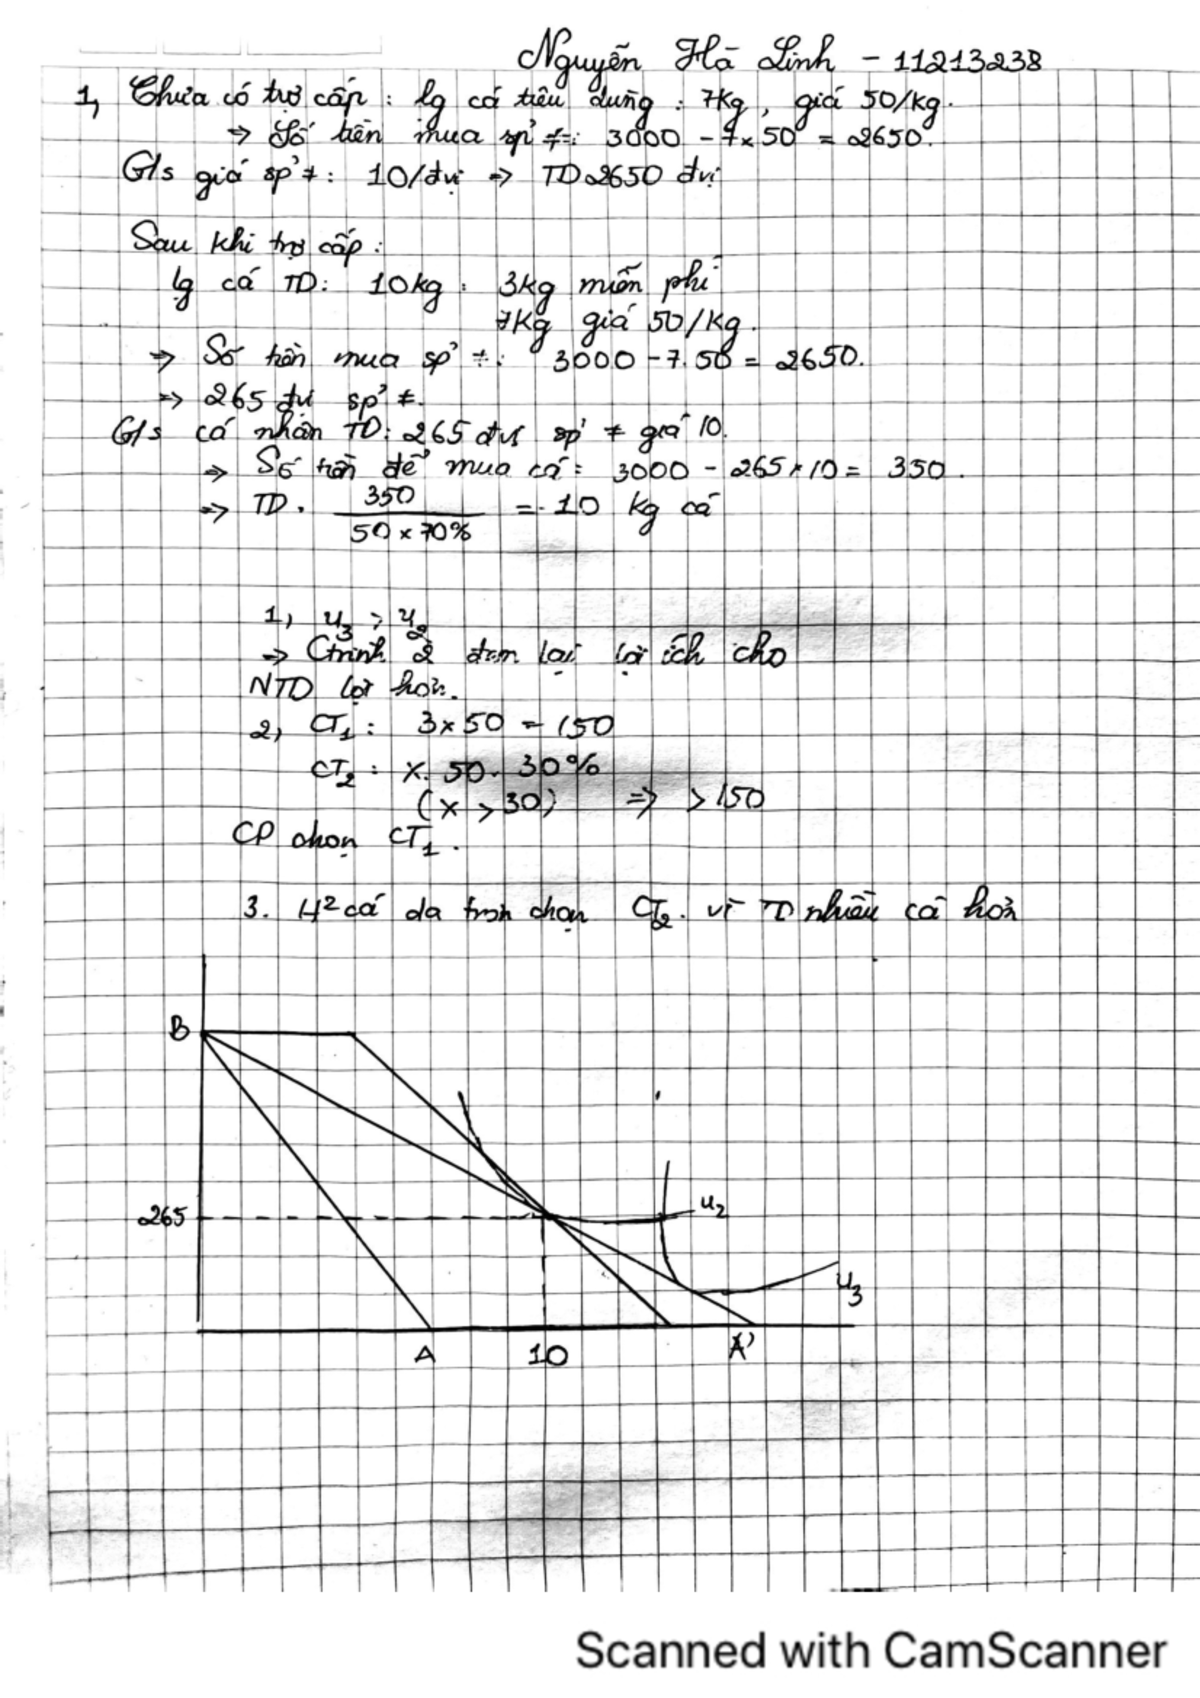 Nguyễn Hà Linh - 11213238
1, Chưa có trợ cấp : lg cá tiêu dùng : 7kg, giá 50/kg.
=> Số tiền mua sp' ≠: 3000 - 7x50 = 2650.
G/s giá sp' ≠: 10/đvị => TD 2650 đvị
Sau khi trợ cấp :
lg cá TD: 10kg : 3kg miễn phí
7kg giá 50/kg.
=> Số tiền mua sp' ≠: 3000 - 7.50 = 2650.
=> 265 đvị sp' ≠.
G/s cá nhân TD: 265 đvị sp' ≠ giá 10.
=> Số tiền để mua cá = 3000 - 265x10 = 350.
=> TD. 350 / 50x70% = 10 kg cá
1, u3 > u2
=> Ctrình 2 đem lại lợi ích cho
NTD lợi hơn.
2, CT1 : 3x50 = 150
CT2 : x. 50. 30%
(x > 30) => > 150
CP chọn CT1.
3. H² cá da trơn chọn CT2. vì TD nhiều cá hơn
B
265
u2
u3
A 10 A'
Scanned with CamScanner